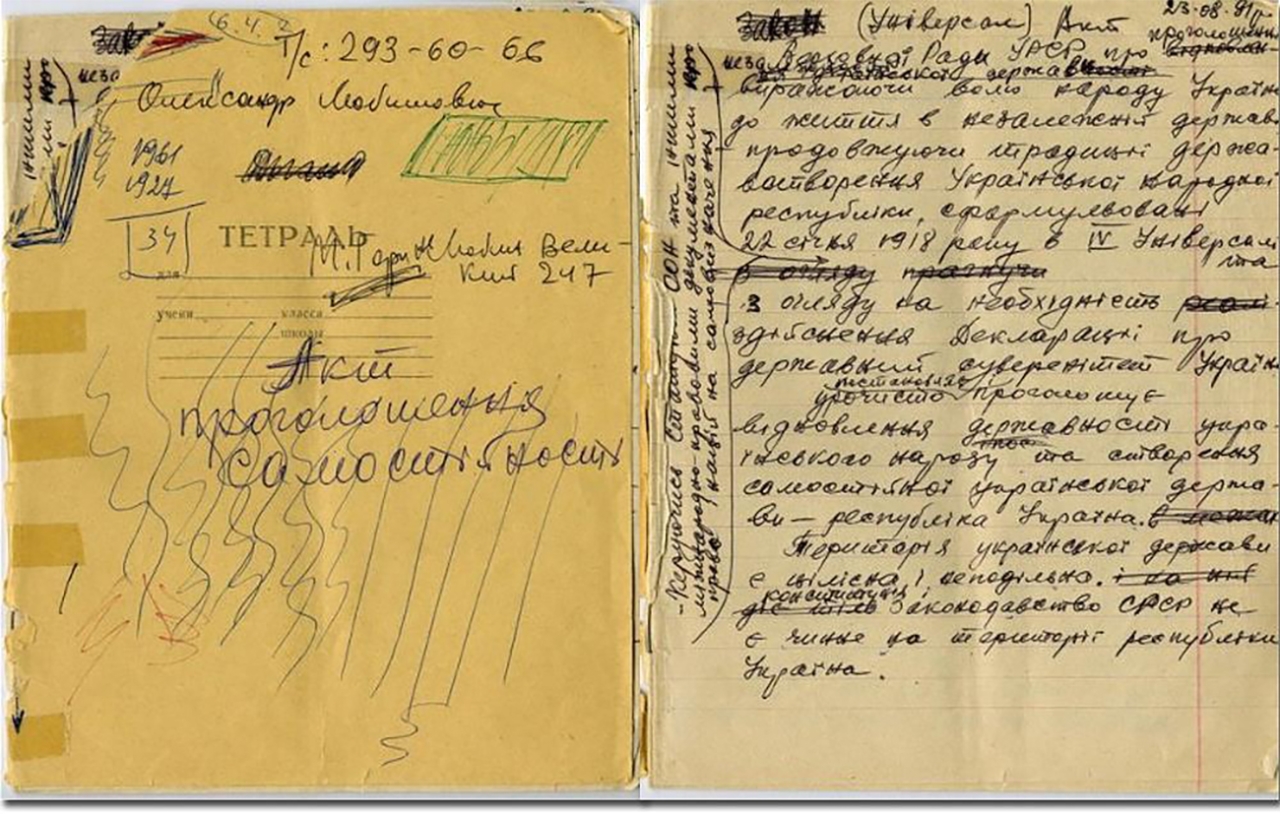 Т/с: 293-60-66
Олександр
1961
1927
34
ТЕТРАДЬ
Вели-
кий 247
для
учени
класса
школы
Акт
проголошення
самостійності
23-08-91 р.
закон (Універсал) Акт
проголошення
Верховної Ради УРСР про
неза
української державності
виражаючи волю народу Україн
до життя в незалежній державі
продовжуючи традиції держа-
вотворення Української народної
республіки, сформульовані
22 січня 1918 року в IV Універсалі
та
в огляду прагнучи
з огляду на необхідність
здійснення Декларації про
державний суверенітет Україн
урочисто проголошує
відновлення державності укра-
їнського народу та створення
самостійної української держа-
ви — республіка Україна. в межах
Територія української держави
є цілісна і неподільна. і на ній
конституція і
діє тіль законодавство СРСР не
є чинне на території республіки
Україна.
- Керуючись Статутом ООН та іншими
міжнародно-правовими документами про
право націй на самовизначення